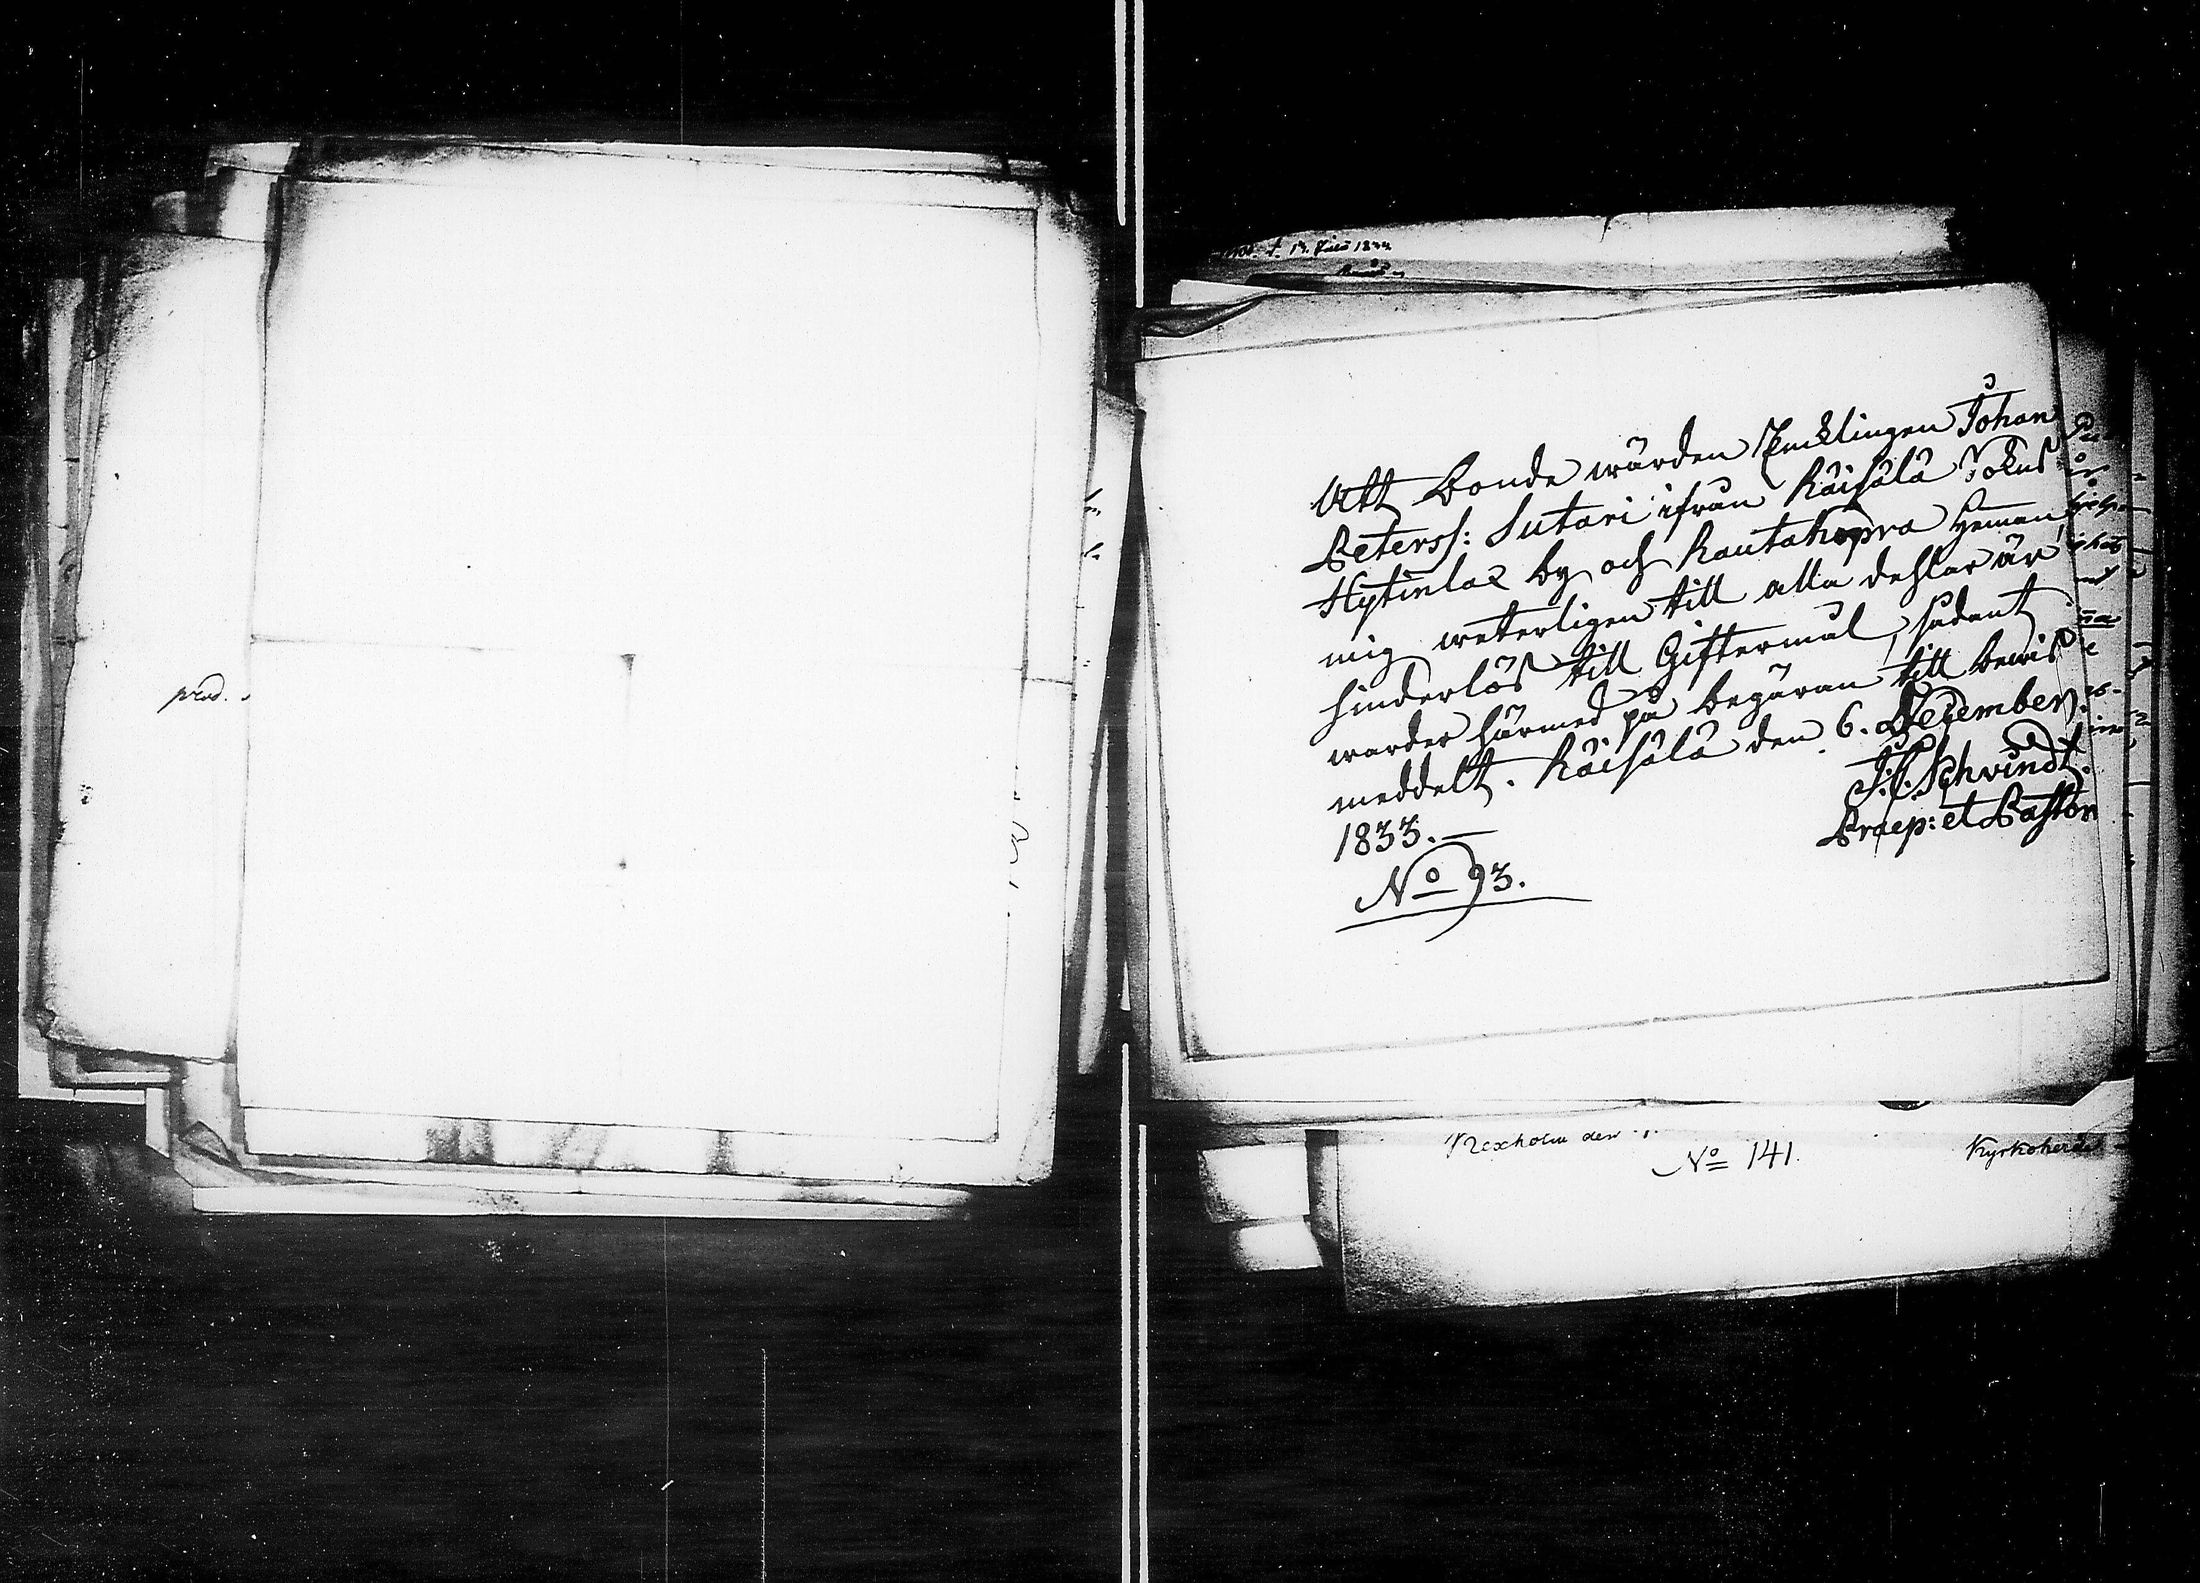 prod.
d. 14. Juni 1844
Att Bonde wärden Encklingen Johan
Peterss: Sutari ifrån Räisälä Sokns
Hytinlax by och Rautakopra Heman
mig weterligen till alla dehlar är
hinderlös till Giftermål, sådant
warder härmed på begäran till bewis
meddelt. Räisälä den 6. December
1833.—
J: J. Schvindt.
Praep: et Pastor
No 93.
Kexholm den
No 141.
Kyrkoherde